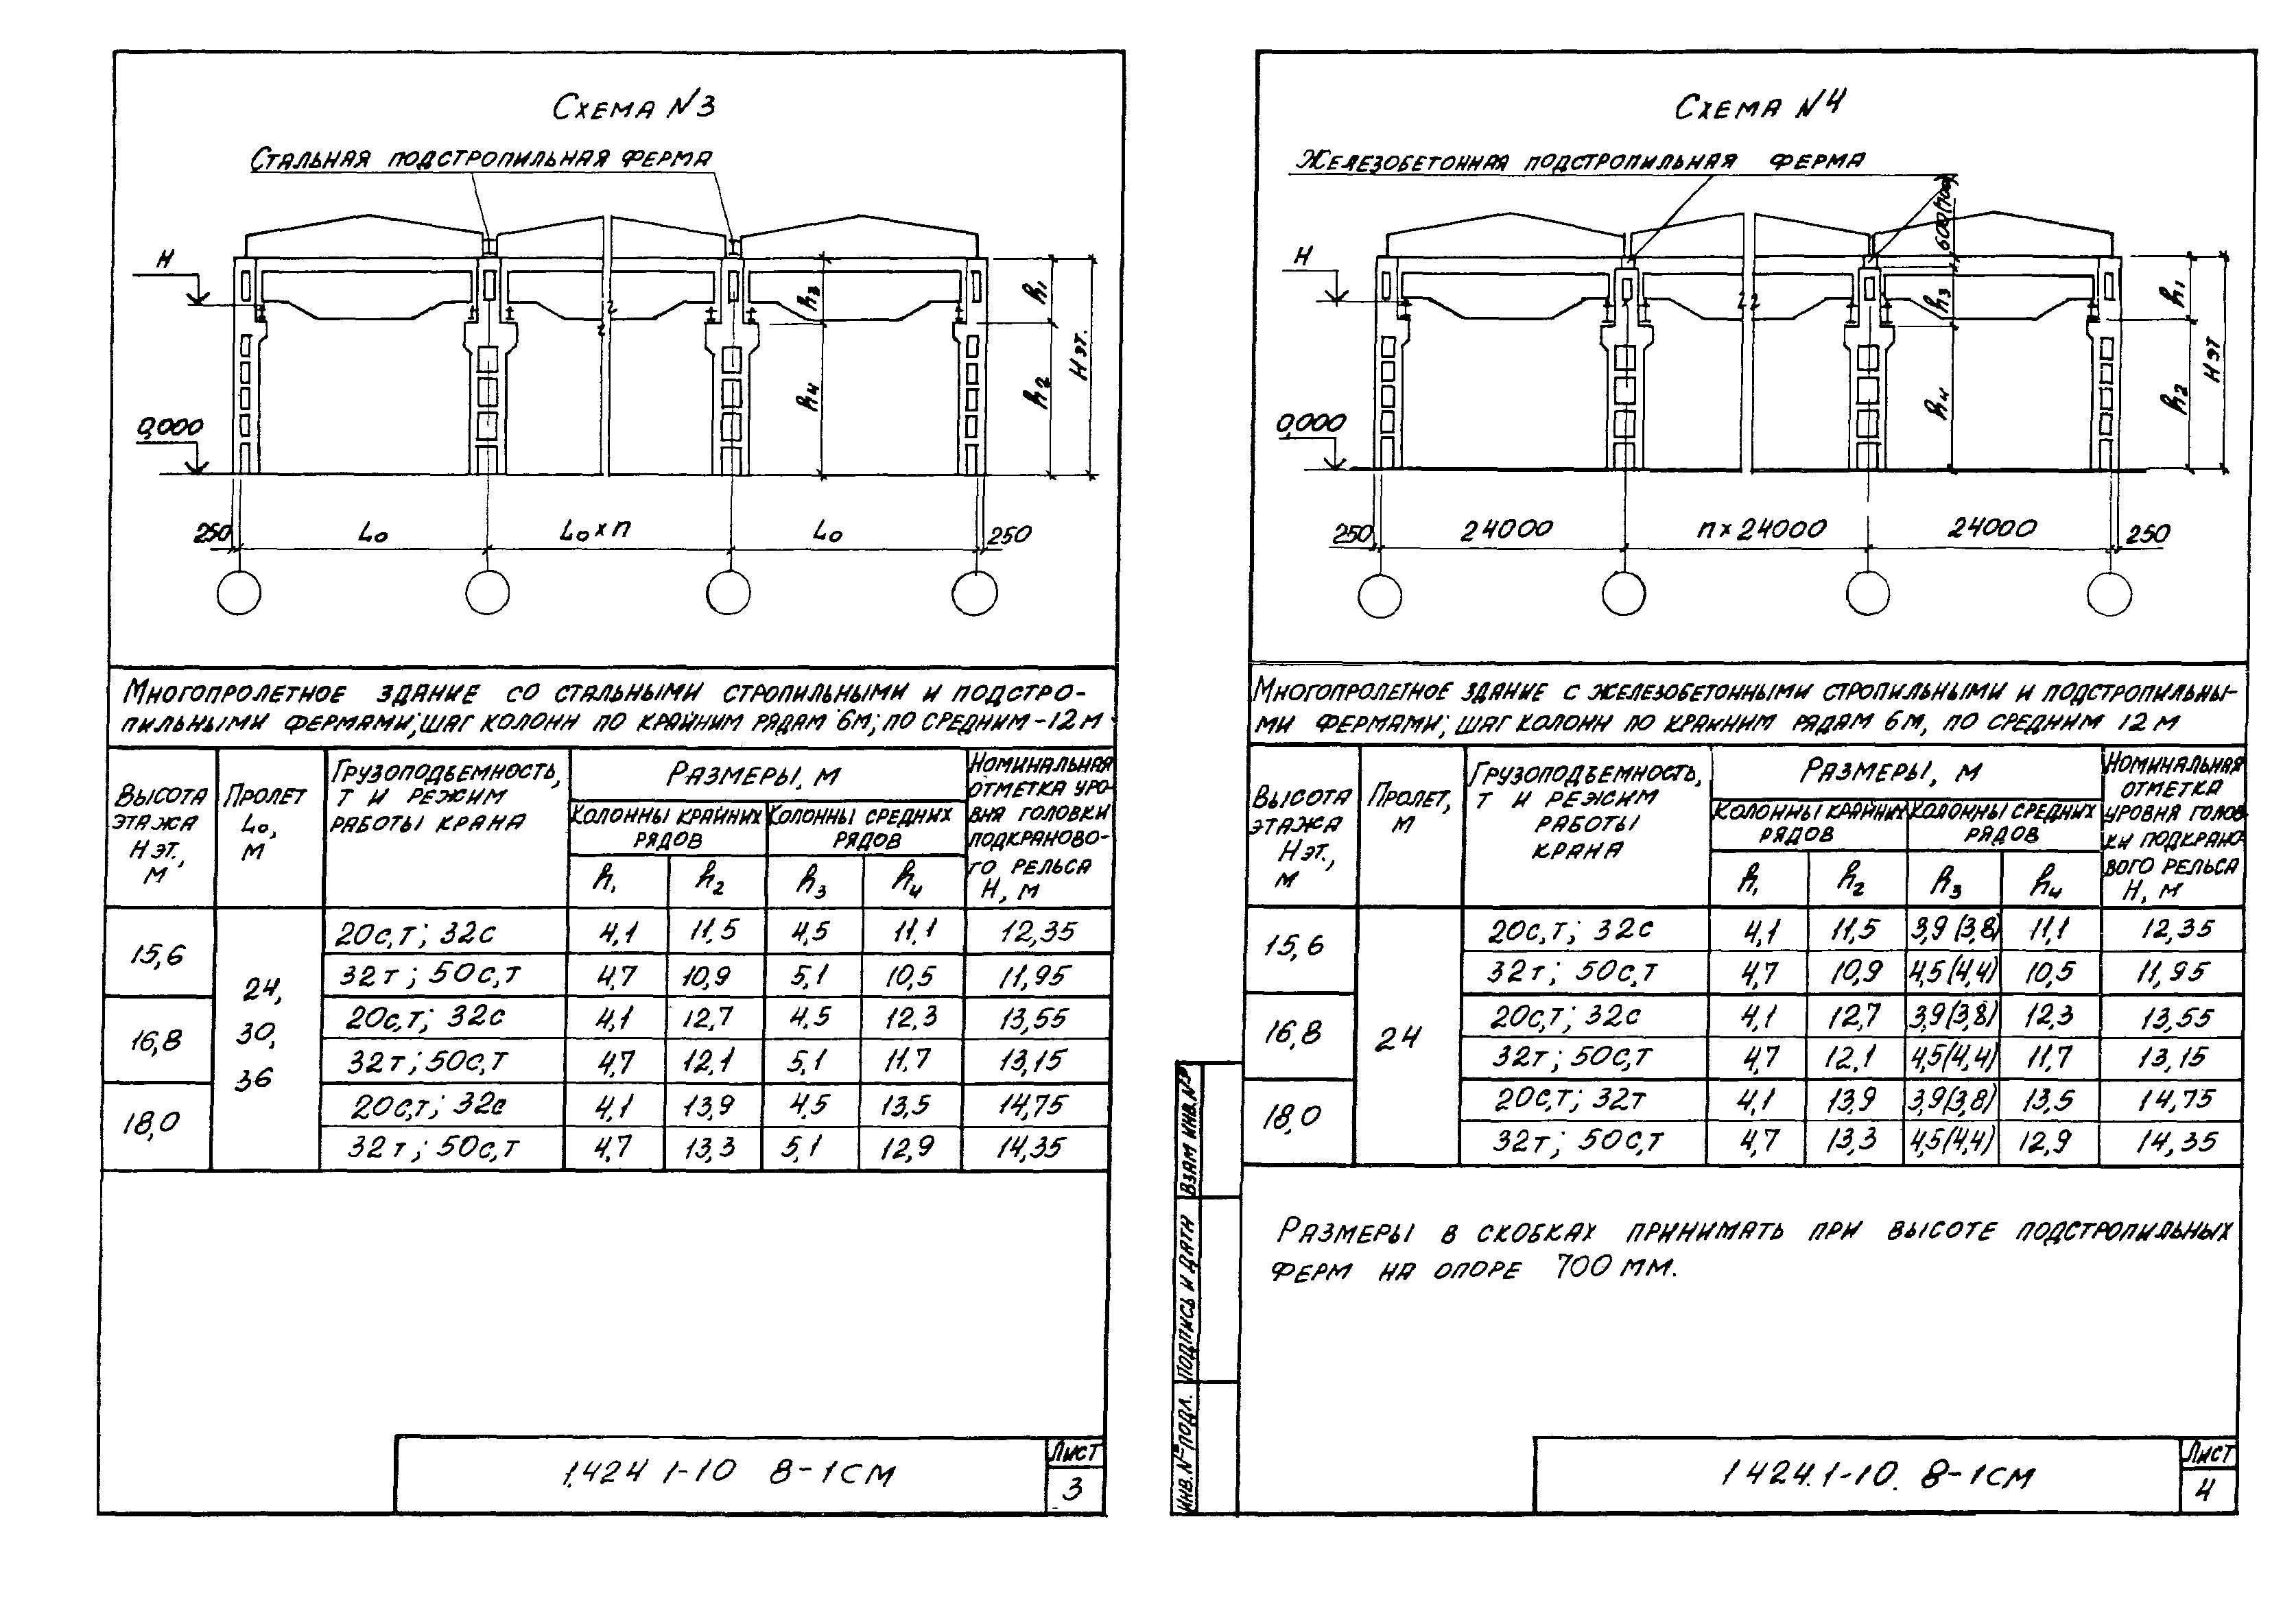 Схема N3
Стальная подстропильная ферма
H
0,000
h3
h4
h1
h2
Hэт.
250 L0 L0 x n L0 250
Многопролетное здание со стальными стропильными и подстро-
пильными фермами; шаг колонн по крайним рядам 6м; по средним -12м
Высота этажа Hэт., м
Пролет L0, м
Грузоподъемность, т и режим работы крана
Размеры, м
Колонны крайних рядов
Колонны средних рядов
h1 h2 h3 h4
Номинальная отметка уровня головки подкранового рельса H, м
15,6
24, 30, 36
20с,т; 32с 4,1 11,5 4,5 11,1 12,35
32т; 50с,т 4,7 10,9 5,1 10,5 11,95
16,8
20с,т; 32с 4,1 12,7 4,5 12,3 13,55
32т; 50с,т 4,7 12,1 5,1 11,7 13,15
18,0
20с,т; 32с 4,1 13,9 4,5 13,5 14,75
32т; 50с,т 4,7 13,3 5,1 12,9 14,35
1.424 1-10 8-1СМ
Лист
3
Схема N4
Железобетонная подстропильная ферма
600(700)
H
0,000
h3
h4
h1
h2
Hэт
250 24000 n x 24000 24000 250
Многопролетное здание с железобетонными стропильными и подстропильны-
ми фермами; шаг колонн по крайним рядам 6м, по средним 12 м
Высота этажа Hэт., м
Пролет, м
Грузоподъемность, т и режим работы крана
Размеры, м
Колонны крайних рядов
Колонны средних рядов
h1 h2 h3 h4
Номинальная отметка уровня головки подкранового рельса H, м
15,6
24
20с,т; 32с 4,1 11,5 3,9(3,8) 11,1 12,35
32т; 50с,т 4,7 10,9 4,5(4,4) 10,5 11,95
16,8
20с,т; 32с 4,1 12,7 3,9(3,8) 12,3 13,55
32т; 50с,т 4,7 12,1 4,5(4,4) 11,7 13,15
18,0
20с,т; 32т 4,1 13,9 3,9(3,8) 13,5 14,75
32т; 50с,т 4,7 13,3 4,5(4,4) 12,9 14,35
Размеры в скобках принимать при высоте подстропильных
ферм на опоре 700 мм.
Взам инв.№
Подпись и дата
Инв.№ подл.
1 424.1-10. 8-1СМ
Лист
4